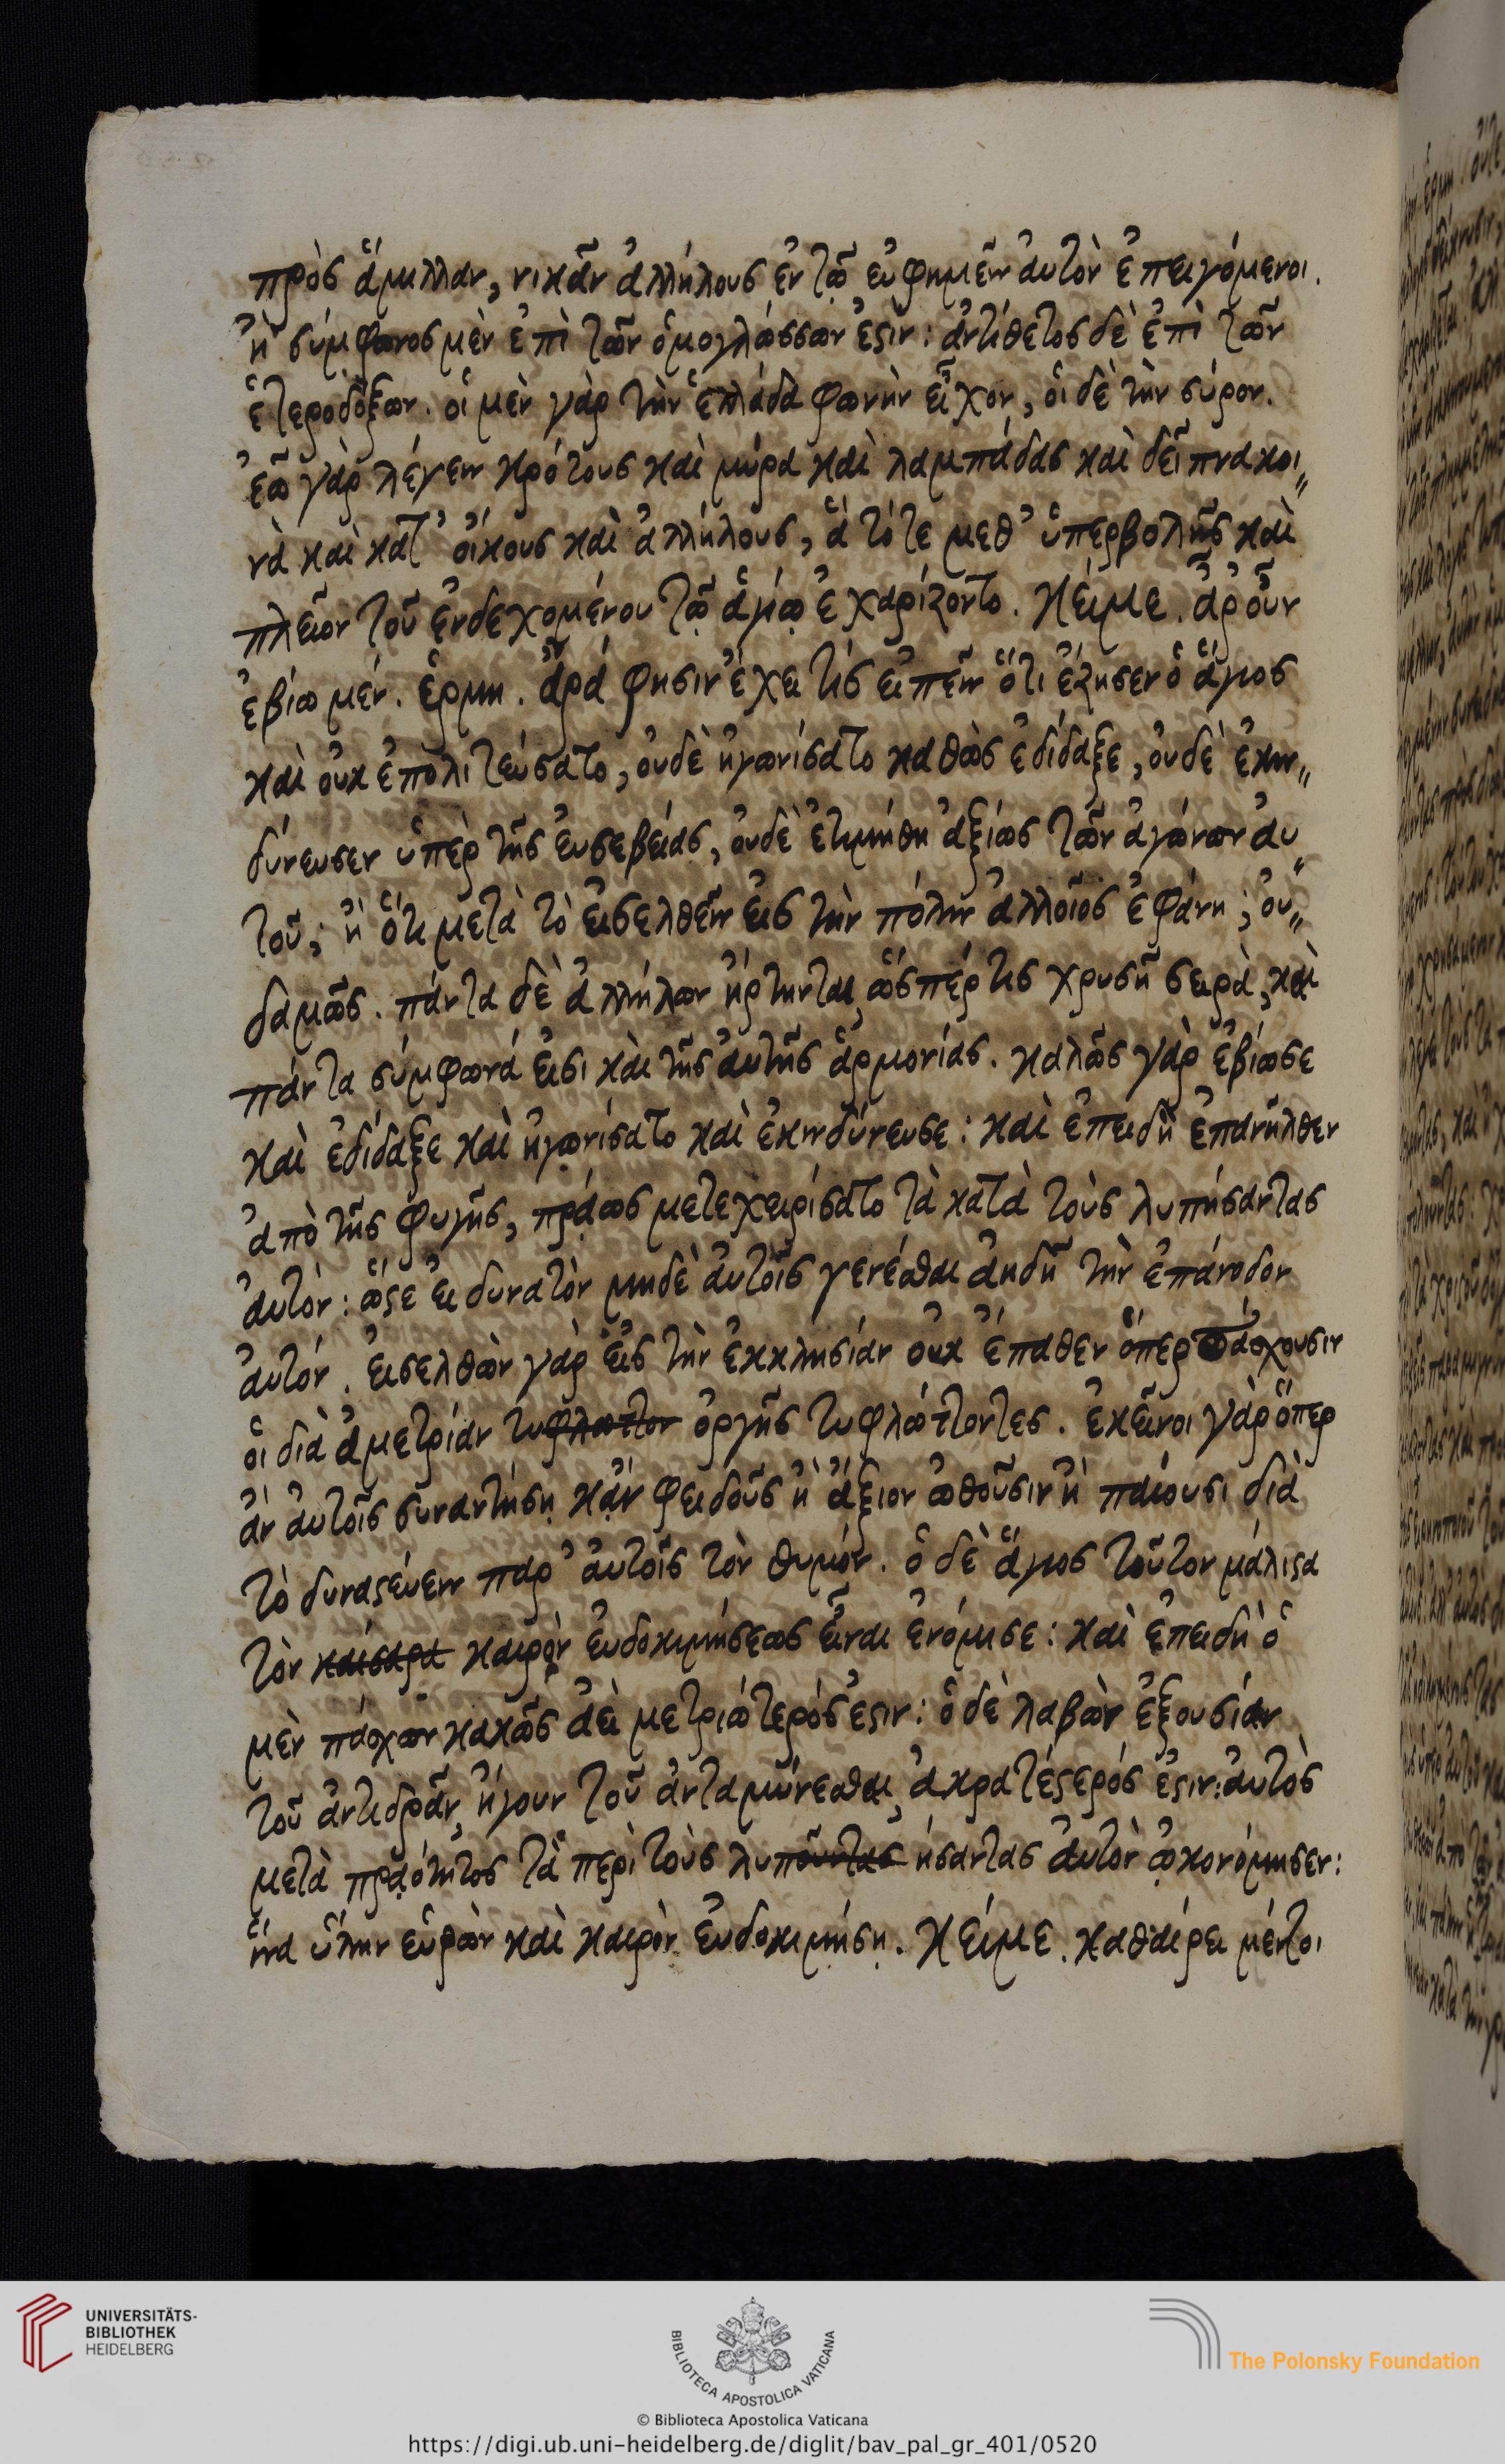 πρὸς ἅμιλλαν, νικᾶν ἀλλήλους ἐν τῷ εὐφημεῖν ἀυτὸν ἐπειγόμενοι.
ἢ σύμφωνος μὲν ἐπὶ τῶν ὁμογλώσσων ἐστιν: ἀντίθετος δὲ ἐπὶ τῶν
ἑτεροδόξων. οἱ μὲν γὰρ τὴν ἑλλάδα φωνὴν εἶχον, οἱ δὲ τὴν σύρον.
ἐῶ γὰρ λέγειν κρότους καὶ μύρα καὶ λαμπάδας καὶ δεῖπνα κοι„
νὰ καὶ κατ' οἴκους καὶ ἀλλήλους, ἃ τότε μεθ' ὑπερβολῆς καὶ
πλεῖον τοῦ ἐνδεχομένου τῷ ἁγίῳ ἐχαρίζοντο. Κείμε. ἆρ οὖν
ἐβίω μέν. ἑρμη. ἆρά φησιν ἔχει τίς εἰπεῖν ὅτι ἔζησεν ὁ ἅγιος
καὶ οὐκ ἐπολιτεύσατο, οὐδὲ ἠγωνίσατο καθὼς ἐδίδαξε, οὐδὲ ἐκιν„
δύνευσεν ὑπὲρ τῆς ἐυσεβείας, ὀυδὲ ἐτιμήθη ἀξίως τῶν ἀγώνων ἀυ„
τοῦ; ἢ ὅτι μετὰ τὸ ἐισελθεῖν ἐις τὴν πόλιν ἀλλοῖος ἐφάνη; ὀυ„
δαμῶς. πάντα δὲ ἀλλήλων ἤρτηνται, ὥσπέρ τις χρυσῆ σειρὰ, καὶ
πάντα σύμφωνά ἐισι καὶ τῆς ἀυτῆς ἁρμονίας. καλῶς γὰρ ἐβίωσε
καὶ ἐδίδαξε καὶ ἠγωνίσατο καὶ ἐκινδύνευσε: καὶ ἐπειδὴ ἐπανῆλθεν
ἀπὸ τῆς φυγῆς, πράως μετεχειρίσατο τὰ κατὰ τοὺς λυπήσαντας
ἀυτόν: ὥστε ἐι δυνατὸν μηδὲ ἀυτοῖς γενέσθαι ἀηδῆ τὴν ἐπάνοδον
ἀυτόν. ἐισελθὼν γὰρ ἐις τὴν ἐκκλησίαν οὐκ ἔπαθεν ὅπερ πάσχουσιν
οἱ διὰ ἀμετρίαν τυφλωττον ὀργῆς τυφλώττοντες. ἐκεῖνοι γὰρ ὅπερ
ἀν ἀυτοῖς συναντήσῃ κἂν φειδοῦς ἢ ἄξιον ὠθοῦσιν ἢ παίουσι διὰ
τὸ δυναστέυειν παρ' ἀυτοῖς τὸν θυμόν. ὁ δὲ ἅγιος τοῦτον μάλιστα
τὸν καίσαρα καιρὸν ἐυδοκιμήσεως ἐῖναι ἐνόμισε: καὶ ἐπειδὴ ὁ
μὲν πάσχων κακῶς ἀεὶ μετριώτερός ἐστιν: ὁ δὲ λαβὼν ἐξουσίαν
τοῦ ἀντιδρᾶν, ἤγουν τοῦ ἀνταμύνεσθαι, ἀκρατέστερός ἐστιν: ἀυτὸς
μετὰ πραότητος τὰ περὶ τοὺς λυποῦντας ήσαντας ἀυτὸν ᾠκονόμησεν:
ἵνα ὕλην εὑρὼν καὶ καιρὸν ἐυδοκιμήσῃ. Κείμε. καθαίρει μέντοι
UNIVERSITÄTS-
BIBLIOTHEK
HEIDELBERG
BIBLIOTECA APOSTOLICA VATICANA
The Polonsky Foundation
© Biblioteca Apostolica Vaticana
https://digi.ub.uni-heidelberg.de/diglit/bav_pal_gr_401/0520